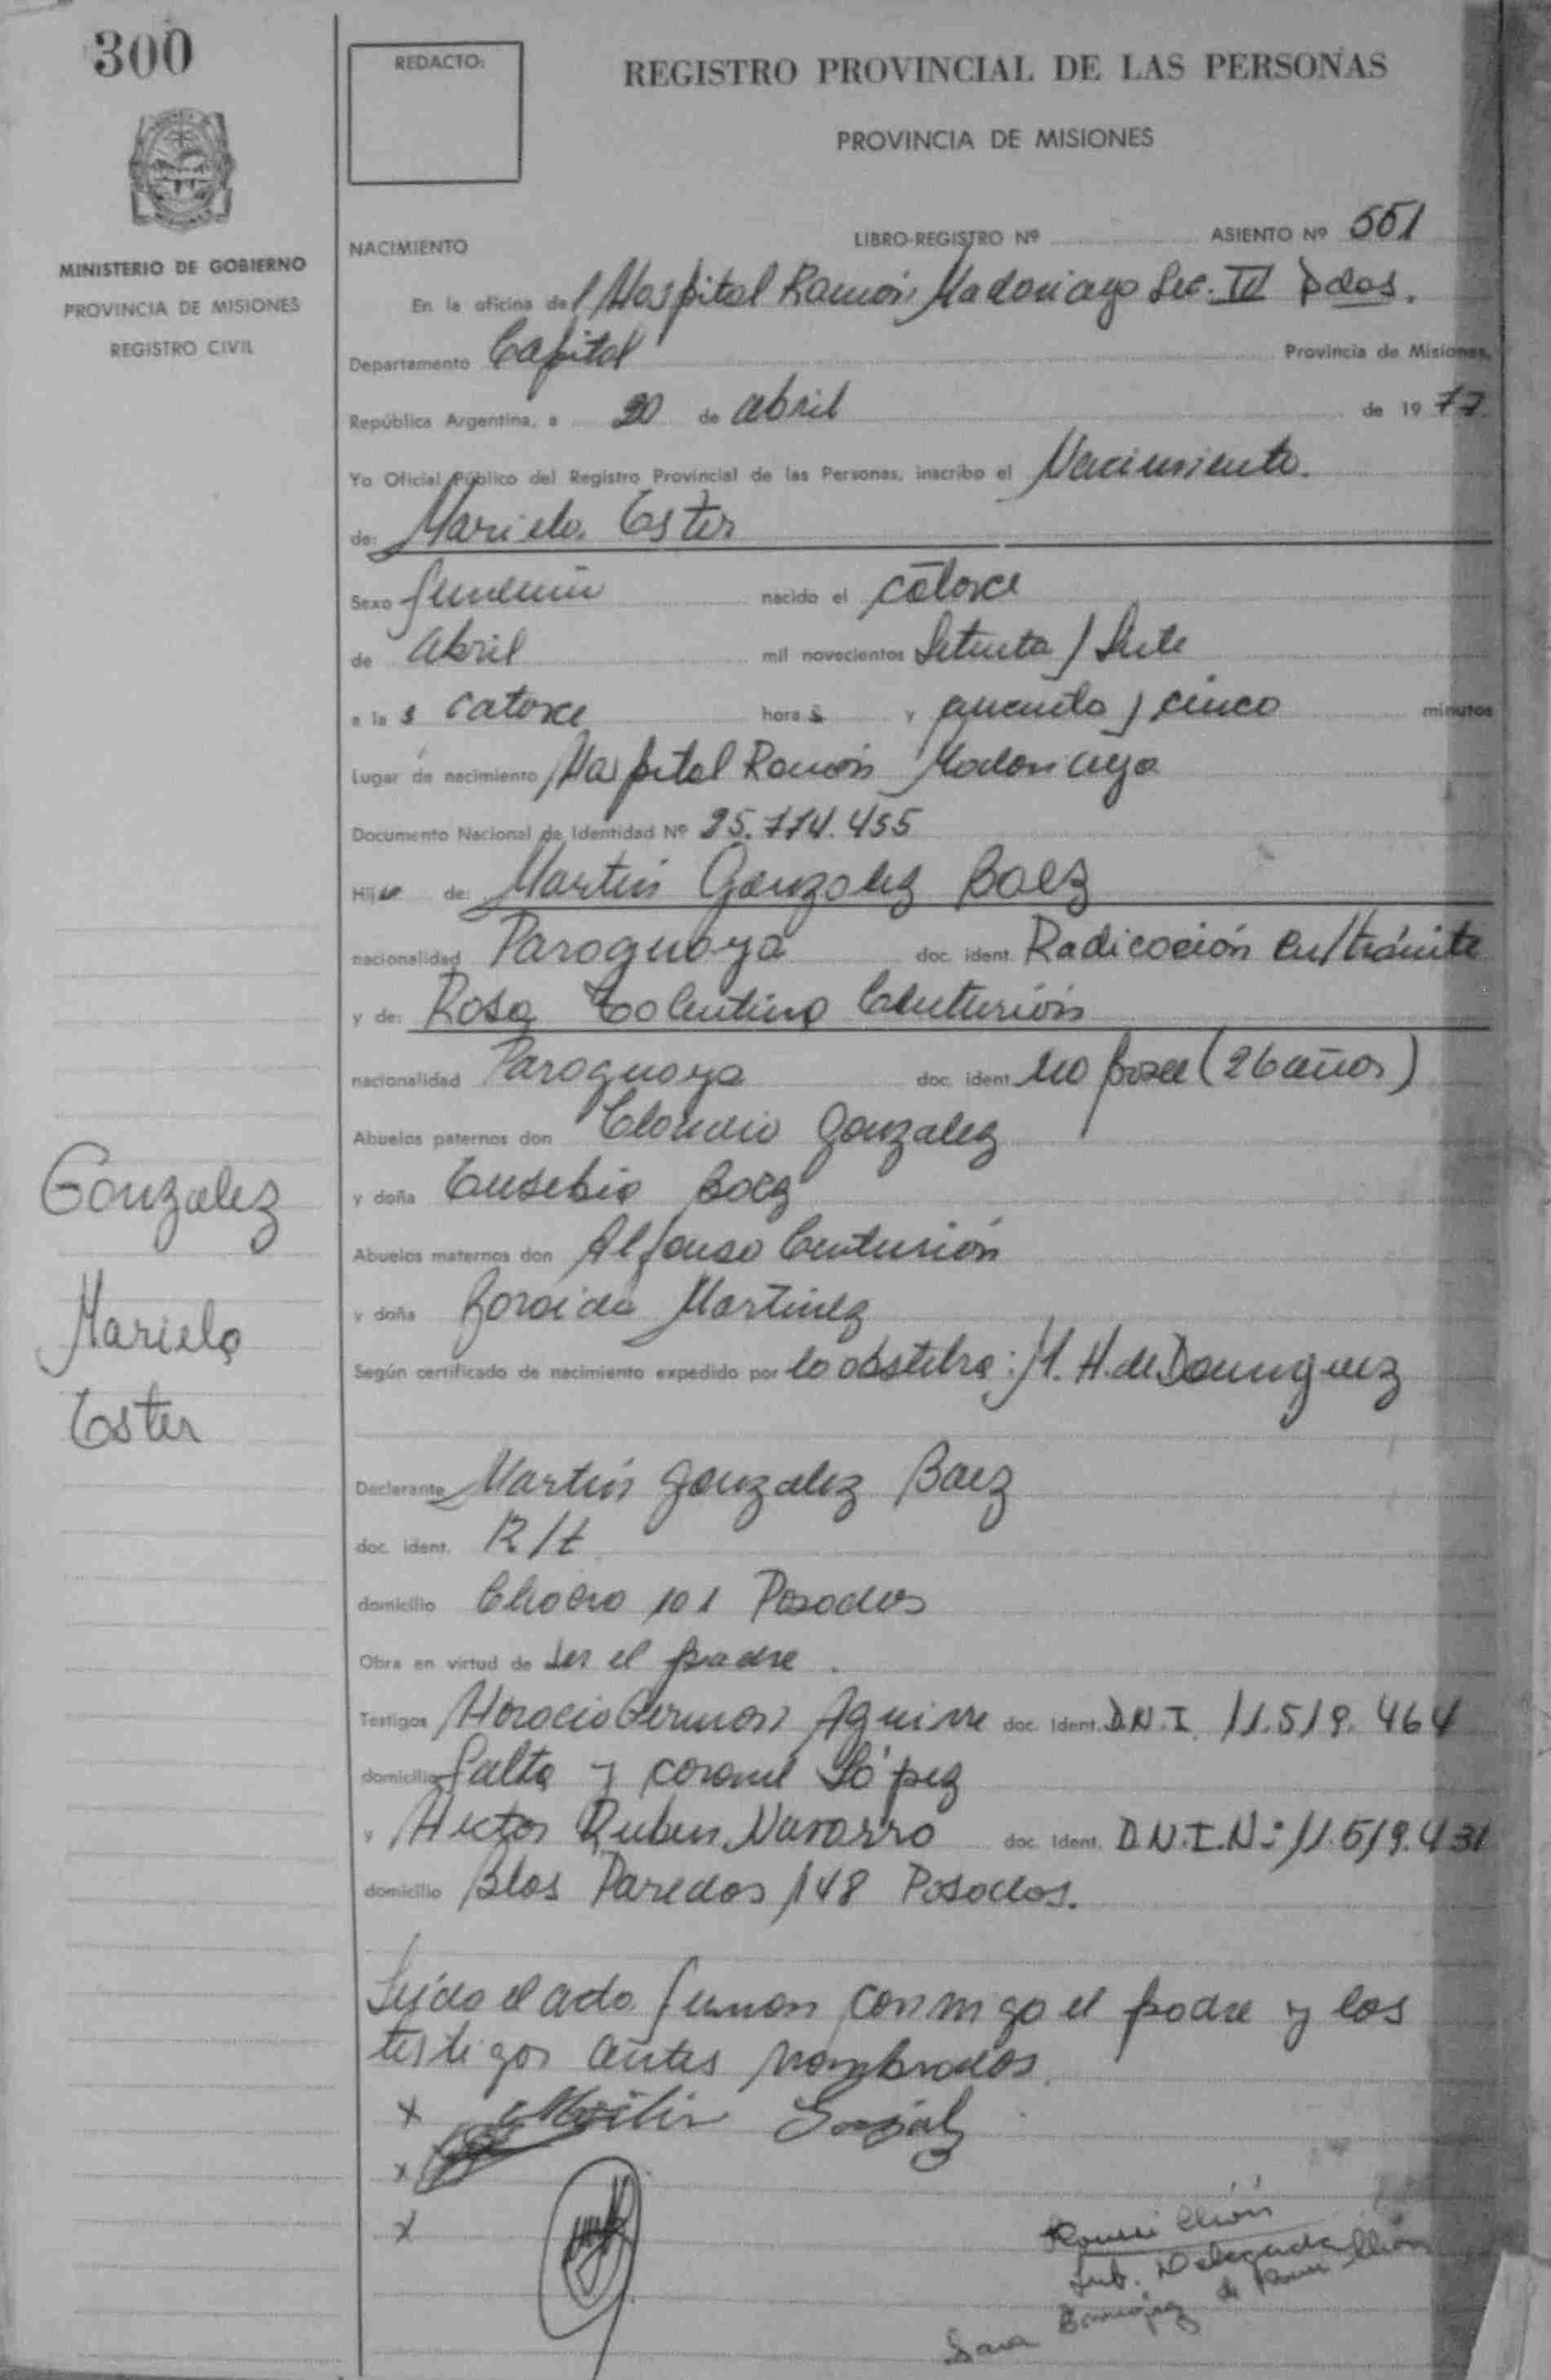 300
REDACTO:
REGISTRO PROVINCIAL DE LAS PERSONAS
PROVINCIA DE MISIONES
MINISTERIO DE GOBIERNO
PROVINCIA DE MISIONES
REGISTRO CIVIL
NACIMIENTO LIBRO-REGISTRO Nº ASIENTO Nº 551
En la oficina del Hospital Ramón Madariaga Sec. III Pdas.
Departamento Capital Provincia de Misiones,
República Argentina, a 20 de abril de 1977
Yo Oficial Público del Registro Provincial de las Personas, inscribo el Nacimiento.
de: Mariela Ester
Sexo femenino nacido el catorce
de abril mil novecientos Setenta y Siete
a las catorce horas y cuarenta y cinco minutos
Lugar de nacimiento Hospital Ramón Madariaga
Documento Nacional de Identidad Nº 25.774.455
Hija de: Martín Gonzalez Baez
nacionalidad Paraguaya doc. ident. Radicación en/trámite
y de: Rosa Tolentina Centurión
nacionalidad Paraguaya doc. ident. no posee (26 años)
Abuelos paternos don Claudio Gonzalez
y doña Eusebia Baez
Abuelos maternos don Alfonso Centurión
y doña Zoraida Martinez
Según certificado de nacimiento expedido por la obstetra: M. H. de Dominguez
Gonzalez
Mariela
Ester
Declarante Martín Gonzalez Baez
doc. ident. R/t
domicilio Chaco 101 Posadas
Obra en virtud de ser el padre.
Testigos Horacio Germán Aguirre doc. Ident. D.N.I. 11.519.464
domicilio Salta y coronel López
y Hector Ruben Navarro doc. Ident. D.N.I.N: 11.519.431
domicilio Blas Paredas 148 Posadas.
Leída el acta firman conmigo el padre y los
testigos antes nombrados.
x Martin Gonzalez
x
x
Sub. Delegada
Sara de